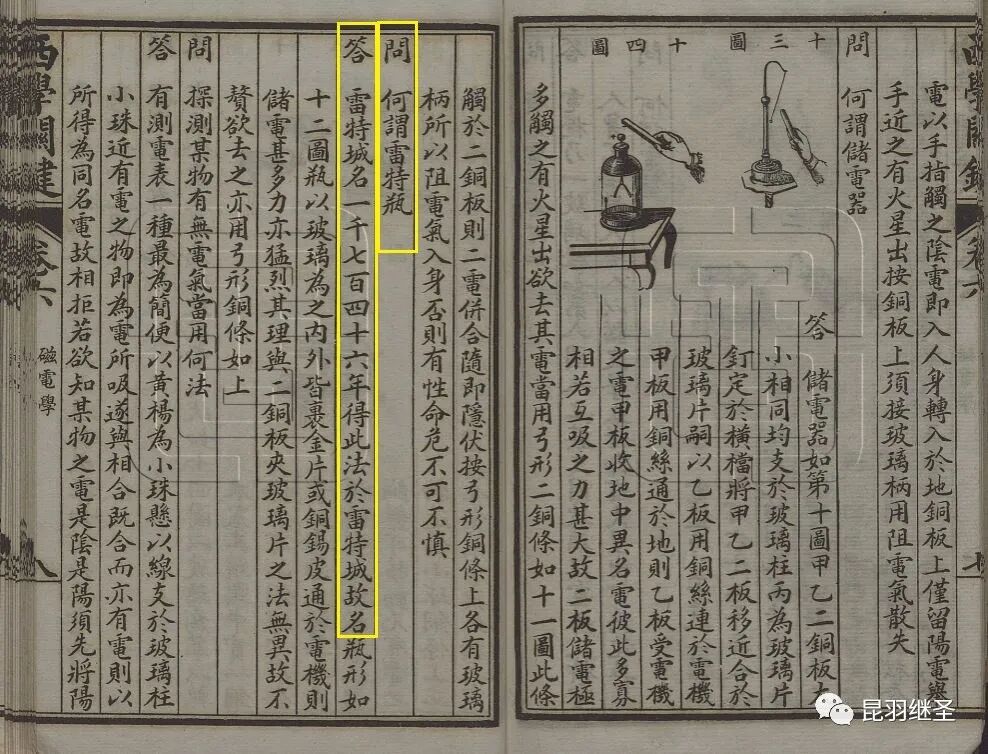 西學關鍵
卷六
電以手指觸之陰電即入人身轉入於地銅板上僅留陽電舉
手近之有火星出按銅板上須接玻璃柄用阻電氣散失
問 何謂儲電器
十三圖
十四圖
答 儲電器如第十圖甲乙二銅板大
小相同均支於玻璃柱丙為玻璃片
釘定於橫檔將甲乙二板移近合於
玻璃片嗣以乙板用銅絲連於電機
甲板用銅絲通於地則乙板受電機
之電甲板收地中異名電彼此多寡
相若互吸之力甚大故二板儲電極
多觸之有火星出欲去其電當用弓形二銅條如十一圖此條
觸於二銅板則二電併合隨即隱伏按弓形銅條上各有玻璃
柄所以阻電氣入身否則有性命危不可不慎
問 何謂雷特瓶
答 雷特城名一千七百四十六年得此法於雷特城故名瓶形如
十二圖瓶以玻璃為之內外皆裹金片或銅錫皮通於電機則
儲電甚多力亦猛烈其理與二銅板夾玻璃片之法無異故不
贅欲去之亦用弓形銅條如上
問 探測某物有無電氣當用何法
答 有測電表一種最為簡便以黃楊為小珠懸以線支於玻璃柱
小珠近有電之物即為電所吸遂與相合既合而亦有電則以
所得為同名電故相拒若欲知某物之電是陰是陽須先將陽
西學關鍵
卷六
磁電學
八
昆羽继圣